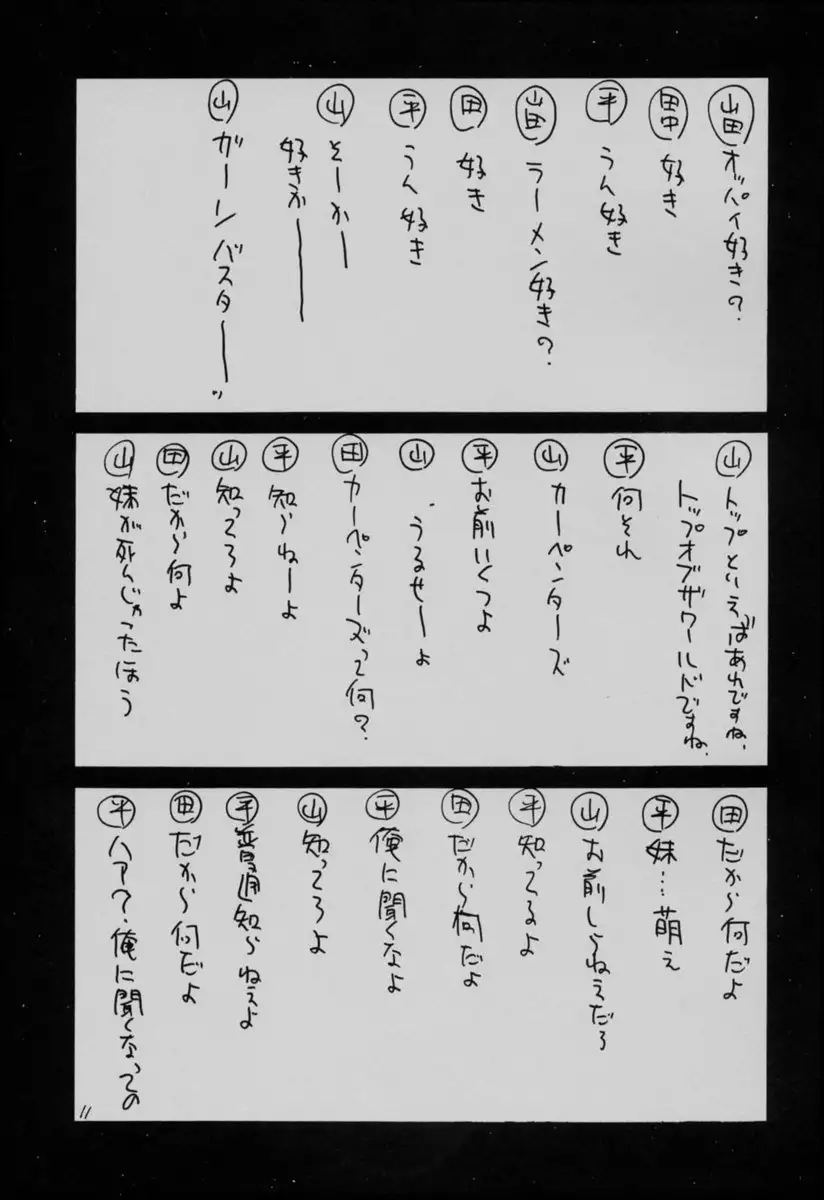 山田 オッパイ好きの?
田中 好き
平 うん好き
山田 ラーメン好きの?
田 好き
平 うん好き
山 そーかー
好きかーー
山 ガーンバスターーッ
山 トップといえばあれですね、
トップオブザワールドですね、
平 何それ
山 カーペンターズ
平 お前いくつよ
山 うるせーよ
田 カーペンターズって何?
平 知らねーよ
山 知ってろよ
田 だから何よ
山 妹が死んじゃったほう
田 だから何だよ
平 妹…萌え
山 お前しらねえだろ
平 知ってるよ
田 だから何だよ
平 俺に聞くなよ
山 知ってろよ
平 普通知らねえよ
田 だから何だよ
平 ハア?俺に聞くなっての
11